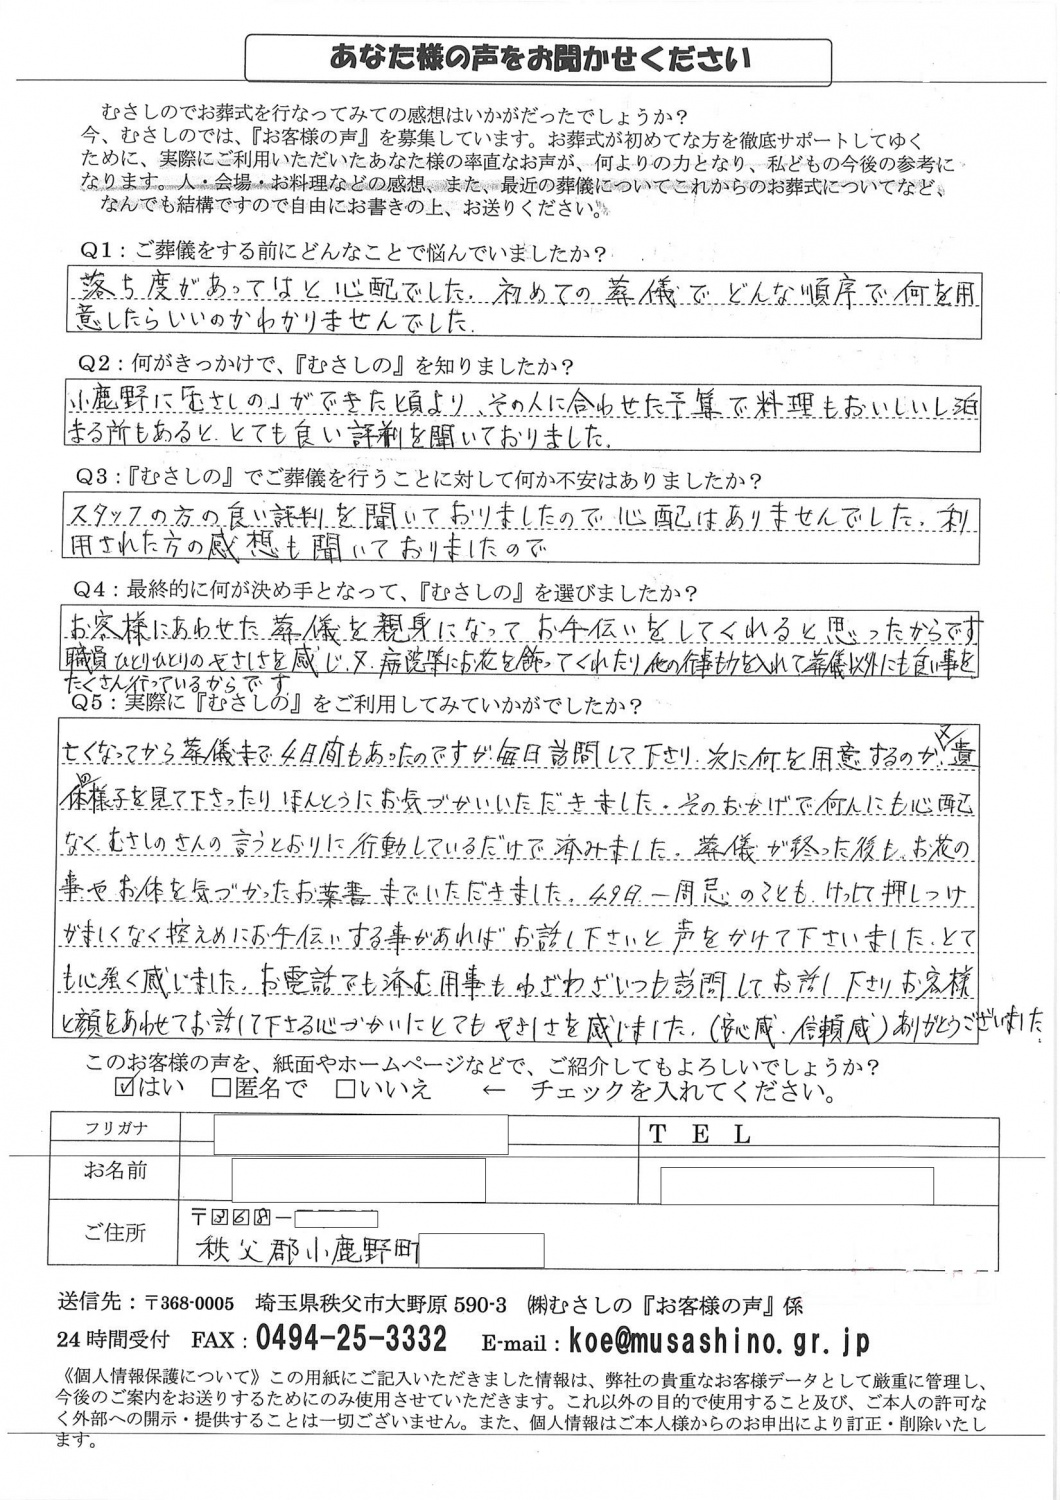 あなた様の声をお聞かせください
むさしのでお葬式を行なってみての感想はいかがだったでしょうか？
今、むさしのでは、『お客様の声』を募集しています。お葬式が初めてな方を徹底サポートしてゆく
ために、実際にご利用いただいたあなた様の率直なお声が、何よりの力となり、私どもの今後の参考に
なります。人・会場・お料理などの感想、また、最近の葬儀についてこれからのお葬式についてなど、
なんでも結構ですので自由にお書きの上、お送りください。
Q1：ご葬儀をする前にどんなことで悩んでいましたか？
落ち度があってはと心配でした。初めての葬儀でどんな順序で何を用
意したらいいのかわかりませんでした。
Q2：何がきっかけで、『むさしの』を知りましたか？
小鹿野に「むさしの」ができた頃より、その人に合わせた予算で料理もおいしいし泊
まる所もあると、とても良い評判を聞いておりました。
Q3：『むさしの』でご葬儀を行うことに対して何か不安はありましたか？
スタッフの方の良い評判を聞いておりましたので心配はありませんでした。利
用された方の感想も聞いておりましたので
Q4：最終的に何が決め手となって、『むさしの』を選びましたか？
お客様にあわせた葬儀を親身になってお手伝いをしてくれると思ったからです
職員ひとりひとりのやさしさを感じ、又、病院等にお花を飾ってくれたり他の行事も力を入れて葬儀以外にも良い事を
たくさん行っているからです
Q5：実際に『むさしの』をご利用してみていかがでしたか？
亡くなってから葬儀まで4日間もあったのですが毎日訪問して下さり、次に何を用意するのか、又遺
体の様子を見て下さったりほんとうにお気づかいいただきました。そのおかげで何んにも心配
なくむさしのさんの言うとおりに行動しているだけで済みました。葬儀が終った後も、お花の
事やお体を気づかったお葉書までいただきました。49日、一周忌のことも、けっして押しつけ
がましくなく控えめにお手伝いする事があればお話し下さいと声をかけて下さいました。とて
も心強く感じました。お電話でも済む用事もわざわざいつも訪問してお話し下さりお客様
と顔をあわせてお話して下さる心づかいにとてもやさしさを感じました。（安心感・信頼感）ありがとうございました。
このお客様の声を、紙面やホームページなどで、ご紹介してもよろしいでしょうか？
☑はい　□匿名で　□いいえ　←　チェックを入れてください。
フリガナ
ＴＥＬ
お名前
ご住所
〒368－
秩父郡小鹿野町
送信先：〒368-0005　埼玉県秩父市大野原 590-3　㈱むさしの『お客様の声』係
24 時間受付　FAX：0494-25-3332　E-mail：koe@musashino.gr.jp
《個人情報保護について》この用紙にご記入いただきました情報は、弊社の貴重なお客様データとして厳重に管理し、
今後のご案内をお送りするためにのみ使用させていただきます。これ以外の目的で使用すること及び、ご本人の許可な
く外部への開示・提供することは一切ございません。また、個人情報はご本人様からのお申出により訂正・削除いたし
ます。